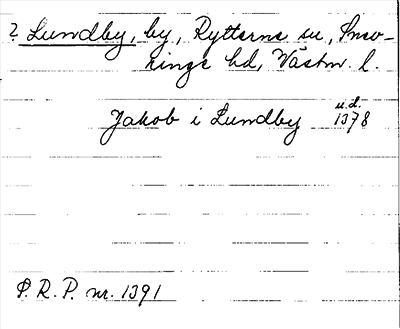 ? Lundby, by, Rytterne sn, Snev-
ringe hd, Västm. l.
u.d.
Jakob i Lundby 1378
P. R. P. nr. 1391